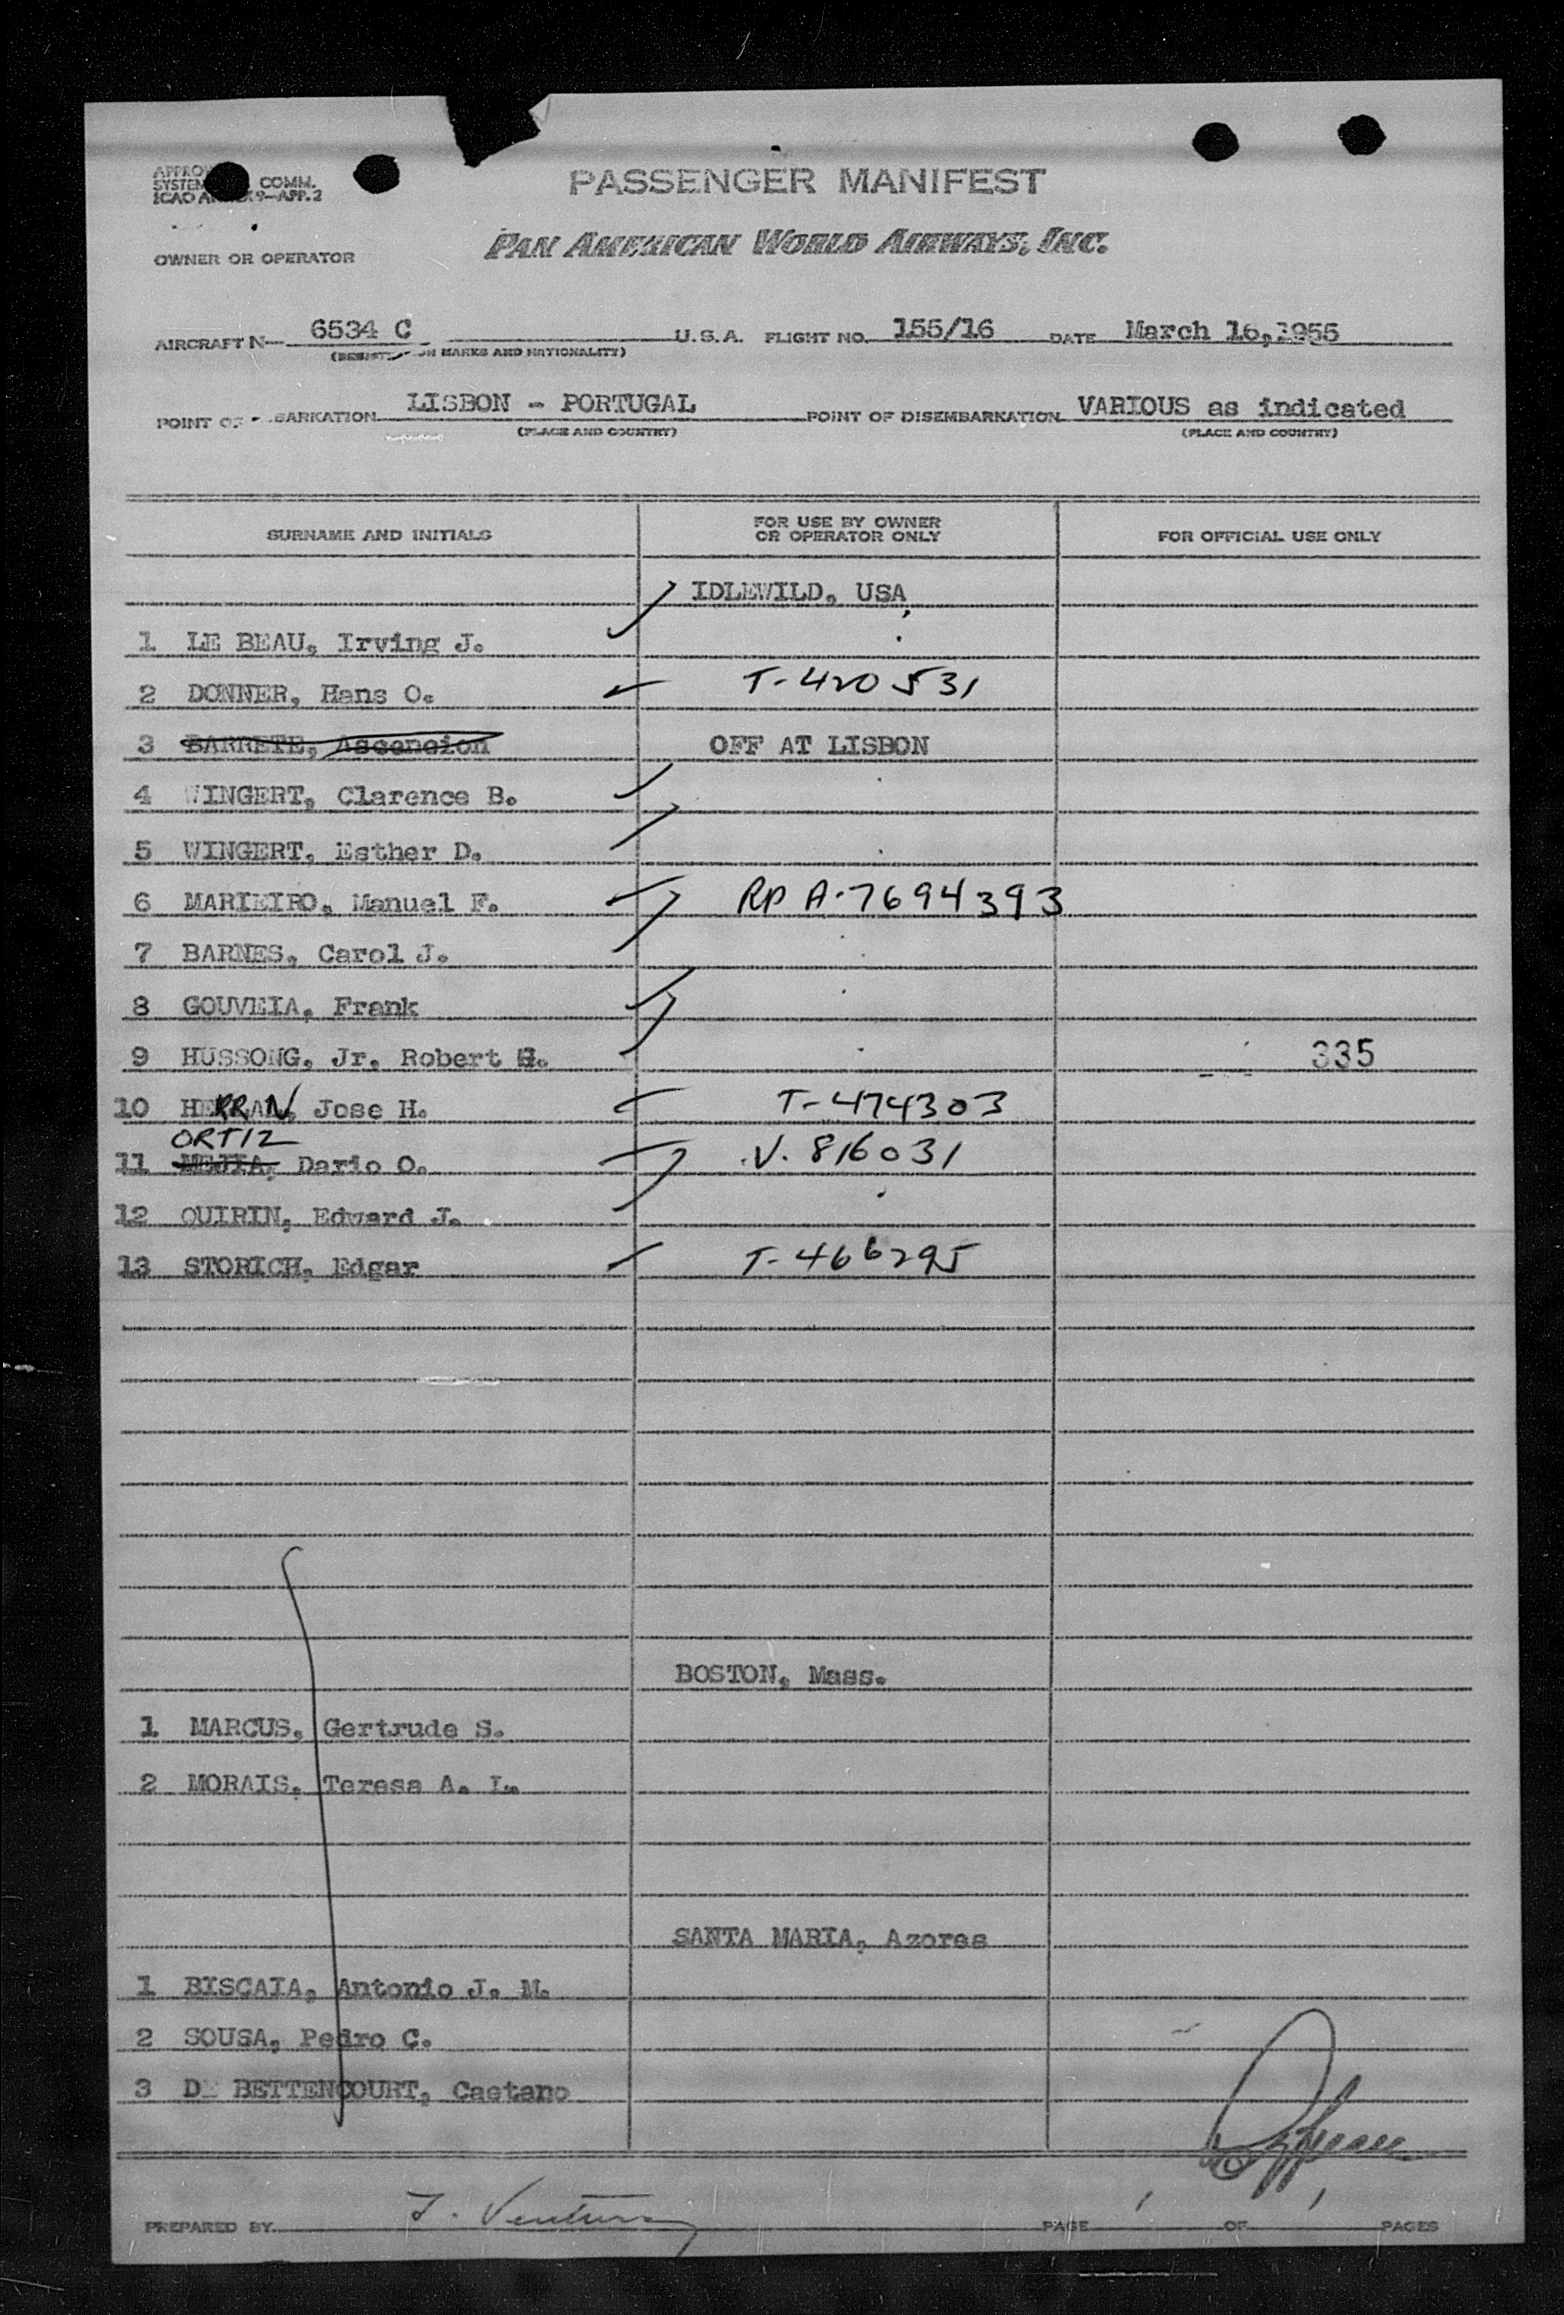 PASSENGER MANIFEST
COMM.
9-APP. 2
OWNER OR OPERATOR
PAN AMERICAN WORLD AIRWAYS, INC.
AIRCRAFT N- 6534 C U.S.A. FLIGHT NO. 155/16 DATE March 16,1955
MARKS AND NATIONALITY)
POINT OF LISBON - PORTUGAL POINT OF DISEMBARKATION VARIOUS as indicated
(PLACE AND COUNTRY) (PLACE AND COUNTRY)
SURNAME AND INITIALS FOR USE BY OWNER OR OPERATOR ONLY FOR OFFICIAL USE ONLY
IDLEWILD, USA
1 LE BEAU, Irving J.
2 DONNER, Hans O. T-420531
3 BARRETE, Ascencion OFF AT LISBON
4 WINGERT, Clarence B.
5 WINGERT, Esther D.
6 MARIEIRO, Manuel F. RP A-7694393
7 BARNES, Carol J.
8 GOUVEIA, Frank
9 HUSSONG, Jr. Robert G. 335
10 HERRAN, Jose H. T-474303
ORTIZ
11 MEJIA, Dario O. V. 816031
12 QUIRIN, Edward J.
13 STORICH, Edgar T-466295
BOSTON, Mass.
1 MARCUS, Gertrude S.
2 MORAIS, Teresa A. L.
SANTA MARIA, Azores
1 BISCAIA, Antonio J. M.
2 SOUSA, Pedro C.
3 DE BETTENCOURT, Caetano
PREPARED BY J. Ventura PAGE 1 OF 1 PAGES